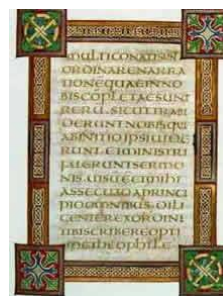 MULTICONATISUNT
ORDINARENARRA
TIONEQUAEINNO
BISCOPLETAESUNT
RERU. SICUTTRADI
DERUNTNOBISQUI
ABINITIOIPSIUIDE
RUNTETMINISTRI
FUERUNTSERMO
NIS. UISUEETMIHI
ASSECUTOAPRINCI
PIOOMNIBUS. DILI
GENTEREXORDINE
TIBISCRIBEREOPTI
METHEOPHILE